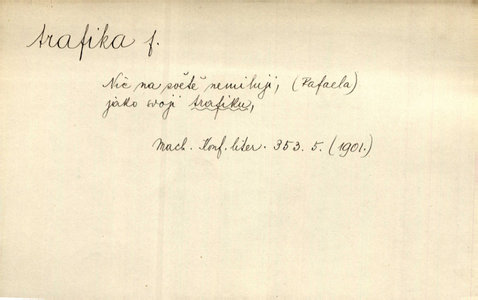 trafika f.
Nic na světě nemiluji, (Rafaela)
jako svoji trafiku,
Mach. Konf. liter. 353. 5. (1901.)